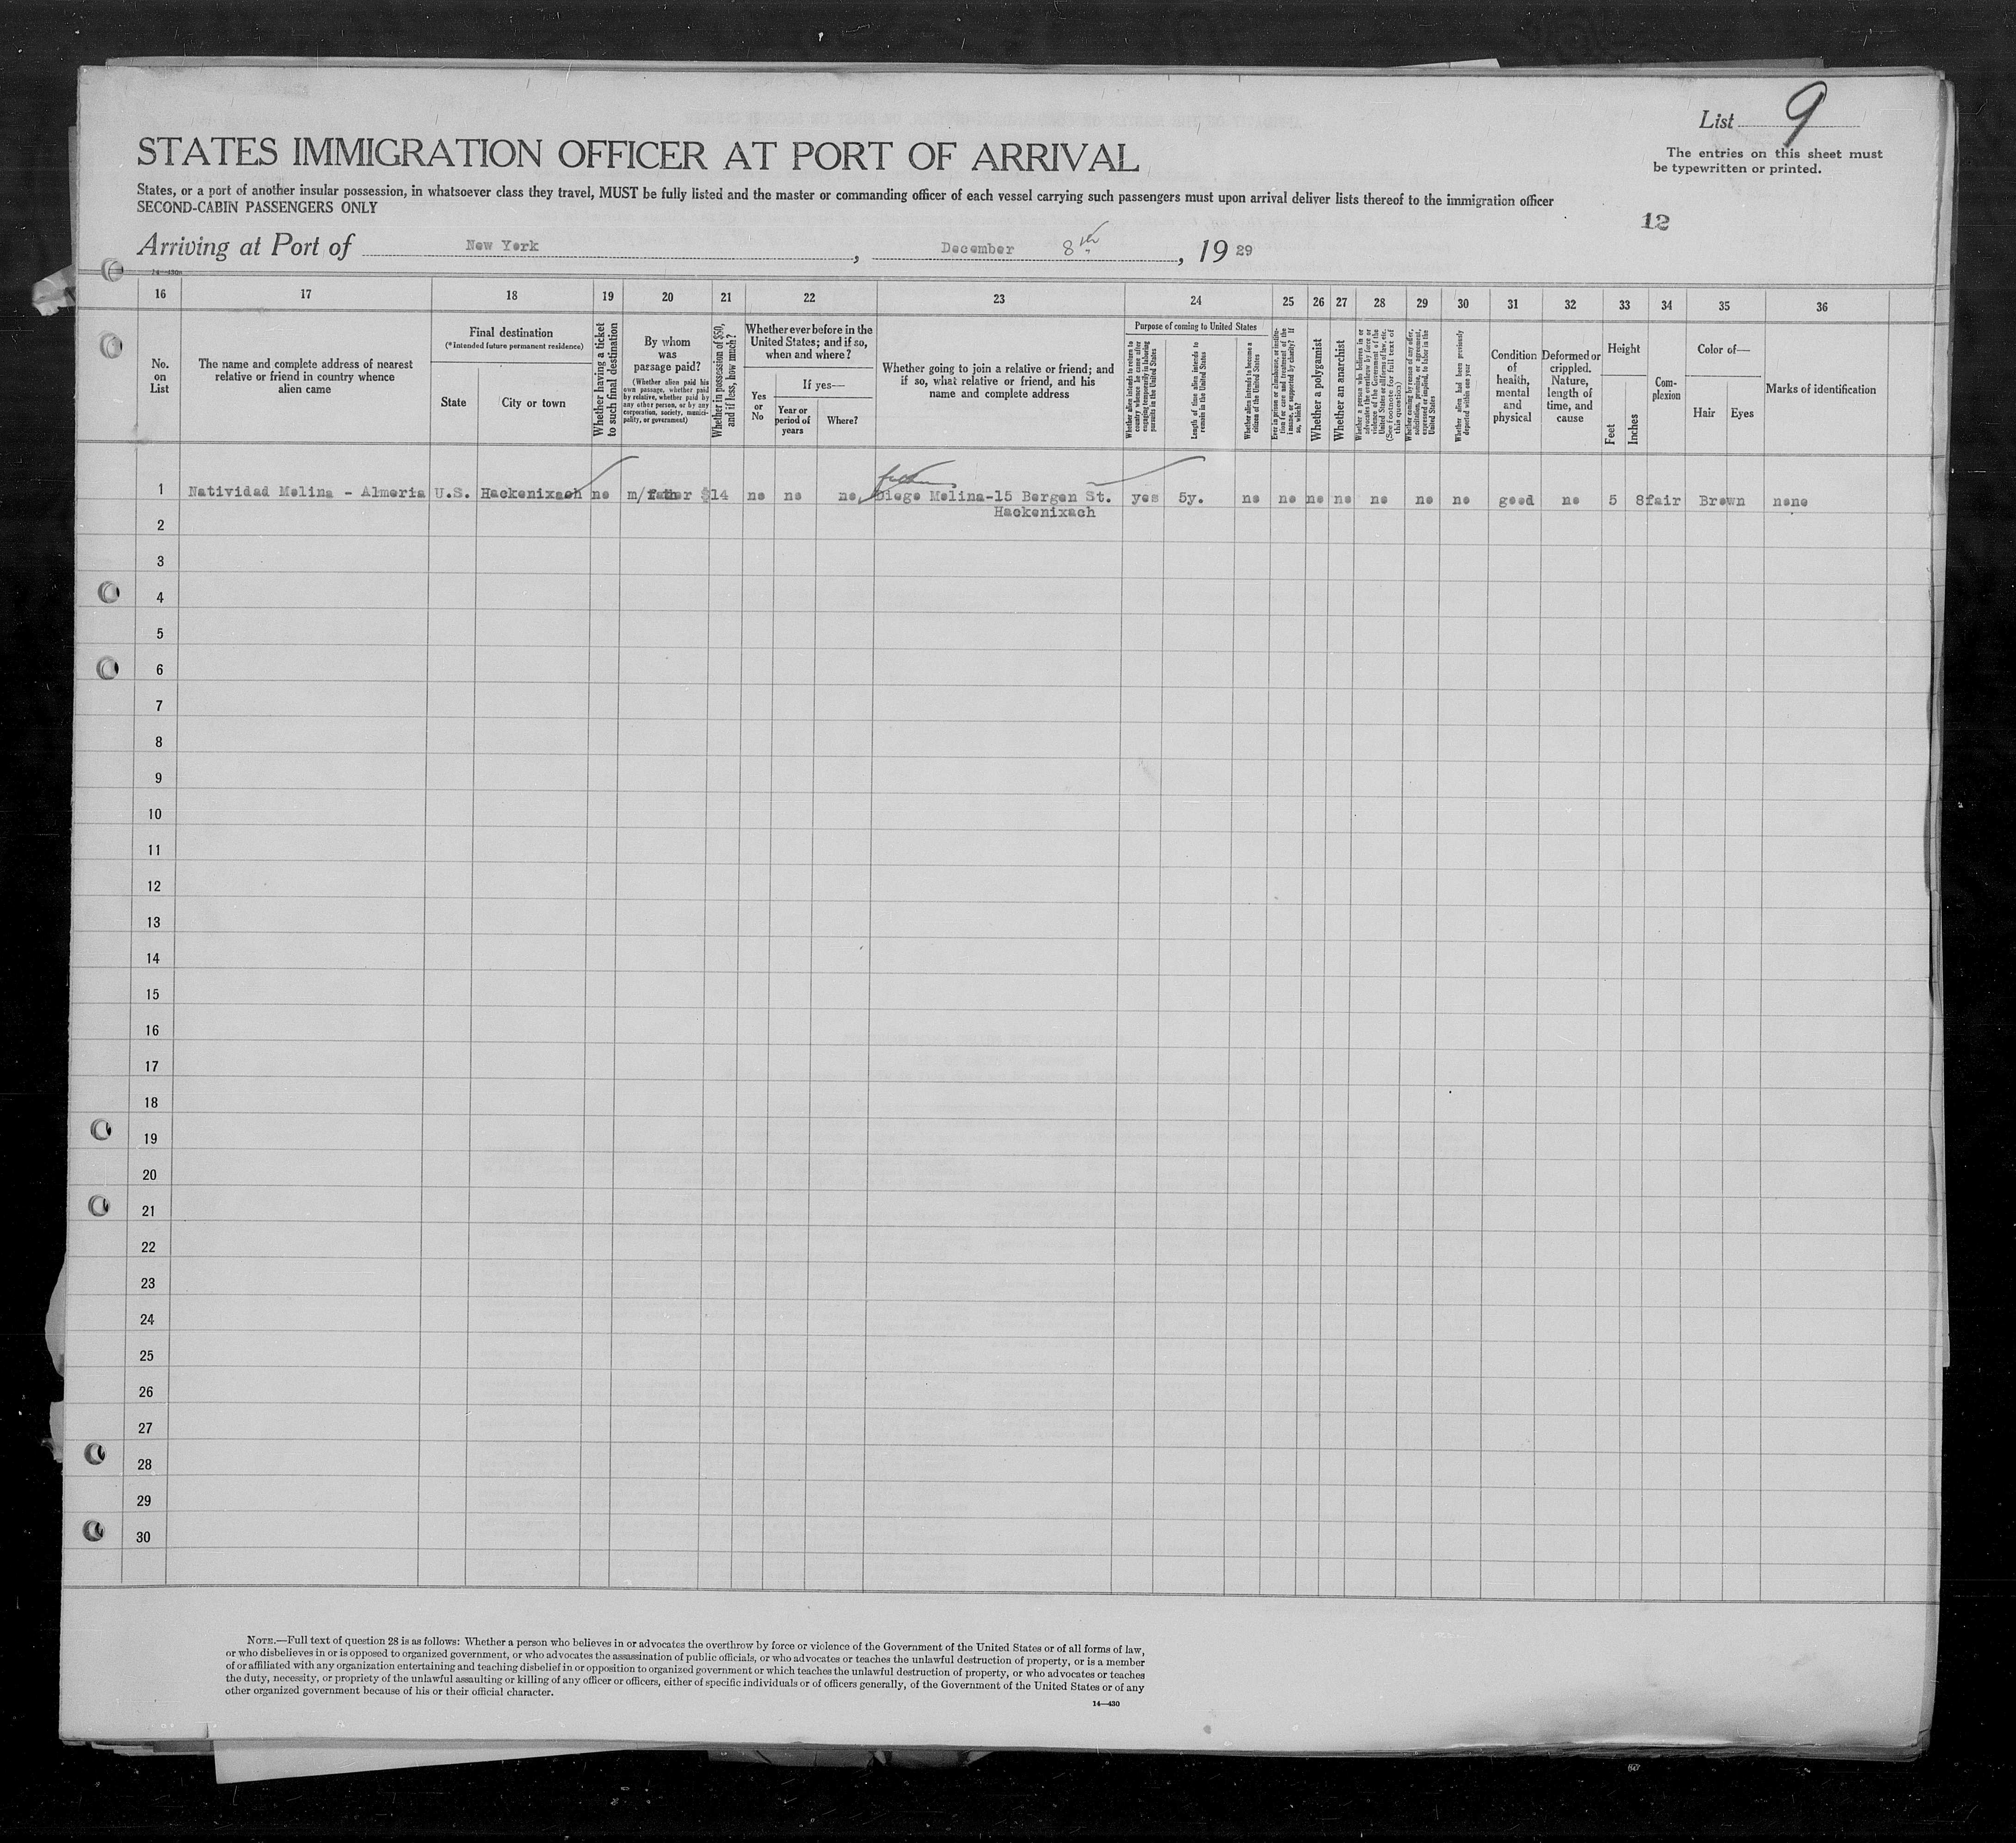 List 9
STATES IMMIGRATION OFFICER AT PORT OF ARRIVAL
The entries on this sheet must
be typewritten or printed.
States, or a port of another insular possession, in whatsoever class they travel, MUST be fully listed and the master or commanding officer of each vessel carrying such passengers must upon arrival deliver lists thereof to the immigration officer
SECOND-CABIN PASSENGERS ONLY
12
Arriving at Port of New York, December 8th, 19 29
14—430a
16 17 18 19 20 21 22 23 24 25 26 27 28 29 30 31 32 33 34 35 36
No.
on
List
The name and complete address of nearest
relative or friend in country whence
alien came
Final destination
(*Intended future permanent residence)
State
City or town
Whether having a ticket
to such final destination
By whom
was
passage paid?
(Whether alien paid his
own passage, whether paid
by relative, whether paid by
any other person, or by any
corporation, society, munici-
pality, or government)
Whether in possession of $50,
and if less, how much?
Whether ever before in the
United States; and if so,
when and where?
Yes
or
No
If yes—
Year or
period of
years
Where?
Whether going to join a relative or friend; and
if so, what relative or friend, and his
name and complete address
Purpose of coming to United States
Whether alien intends to return to
country whence he came after
engaging temporarily in laboring
pursuits in the United States
Length of time alien intends to
remain in the United States
Whether alien intends to become a
citizen of the United States
Ever in prison or almshouse, or institu-
tion for care and treatment of the
insane, or supported by charity? If
so, which?
Whether a polygamist
Whether an anarchist
Whether a person who believes in or
advocates the overthrow by force or
violence of the Government of the
United States or all forms of law, etc.
(See footnote for full text of
this question)
Whether coming by reason of any offer,
solicitation, promise, or agreement,
expressed or implied, to labor in the
United States
Whether alien had been previously
deported within one year
Condition
of
health,
mental
and
physical
Deformed or
crippled.
Nature,
length of
time, and
cause
Height
Feet
Inches
Com-
plexion
Color of—
Hair
Eyes
Marks of identification
father
1 Natividad Molina - Almeria U.S. Hackenixach no m/father $14 no no no Diego Molina-15 Bergen St. yes 5y. no no no no no no no good no 5 8 fair Brown none
Hackenixach
2
3
4
5
6
7
8
9
10
11
12
13
14
15
16
17
18
19
20
21
22
23
24
25
26
27
28
29
30
NOTE.—Full text of question 28 is as follows: Whether a person who believes in or advocates the overthrow by force or violence of the Government of the United States or of all forms of law,
or who disbelieves in or is opposed to organized government, or who advocates the assassination of public officials, or who advocates or teaches the unlawful destruction of property, or is a member
of or affiliated with any organization entertaining and teaching disbelief in or opposition to organized government or which teaches the unlawful destruction of property, or who advocates or teaches
the duty, necessity, or propriety of the unlawful assaulting or killing of any officer or officers, either of specific individuals or of officers generally, of the Government of the United States or of any
other organized government because of his or their official character.
14—430